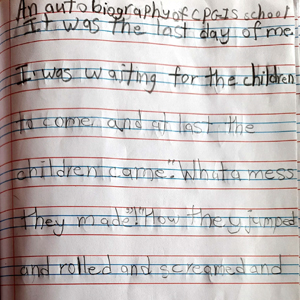 An autobiography of CPGIS school
It was the last day of me.
I was waiting for the children
to come, and at last the
children came." What a mess
they made!" "How they jumped
and rolled and screamed and